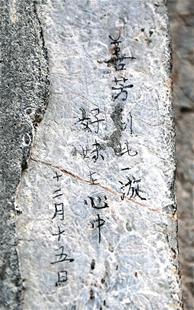 善芳到此一游
好妹心中
十二月十五日